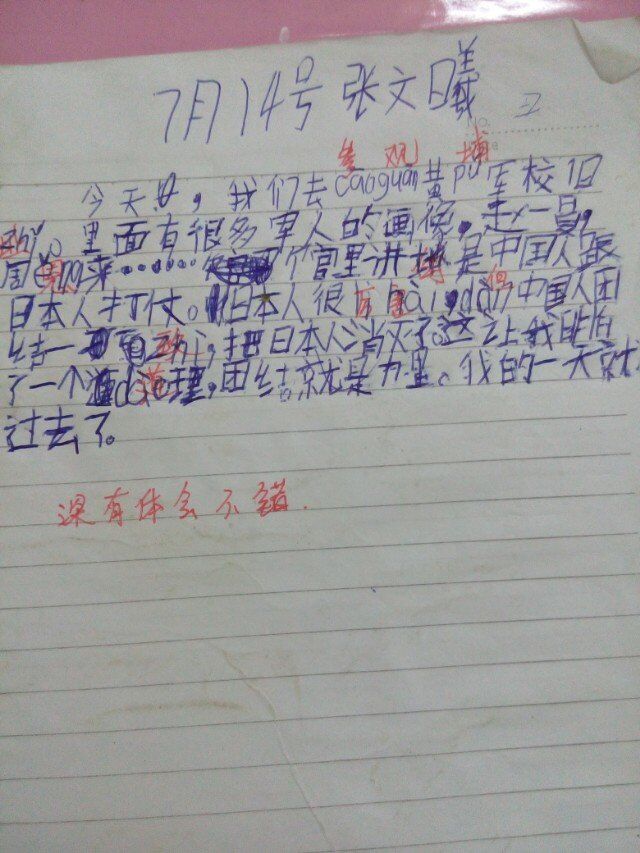 7月14号 张文曦
参观 埔
今天,我们去caoguan黄pu军校旧
里面有很多军人的画像,
国 来……官里讲 是中国人跟
日本人打仗。日本人很 中国人团
结一 ,把日本人消灭了。这让我明白
了一个道理,团结就是力量。我的一天就
过去了。
深有体会不错.